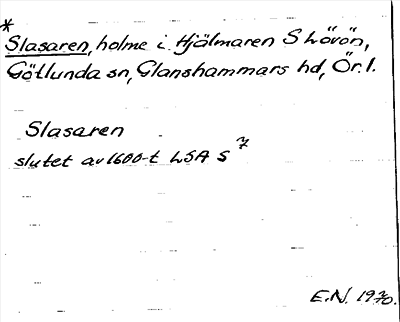 *
Slasaren, holme i Hjälmaren S Lövön,
Götlunda sn, Glanshammars hd, Ör. l.
Slasaren
slutet av 1600-t LSA S 7
E.N. 1970.